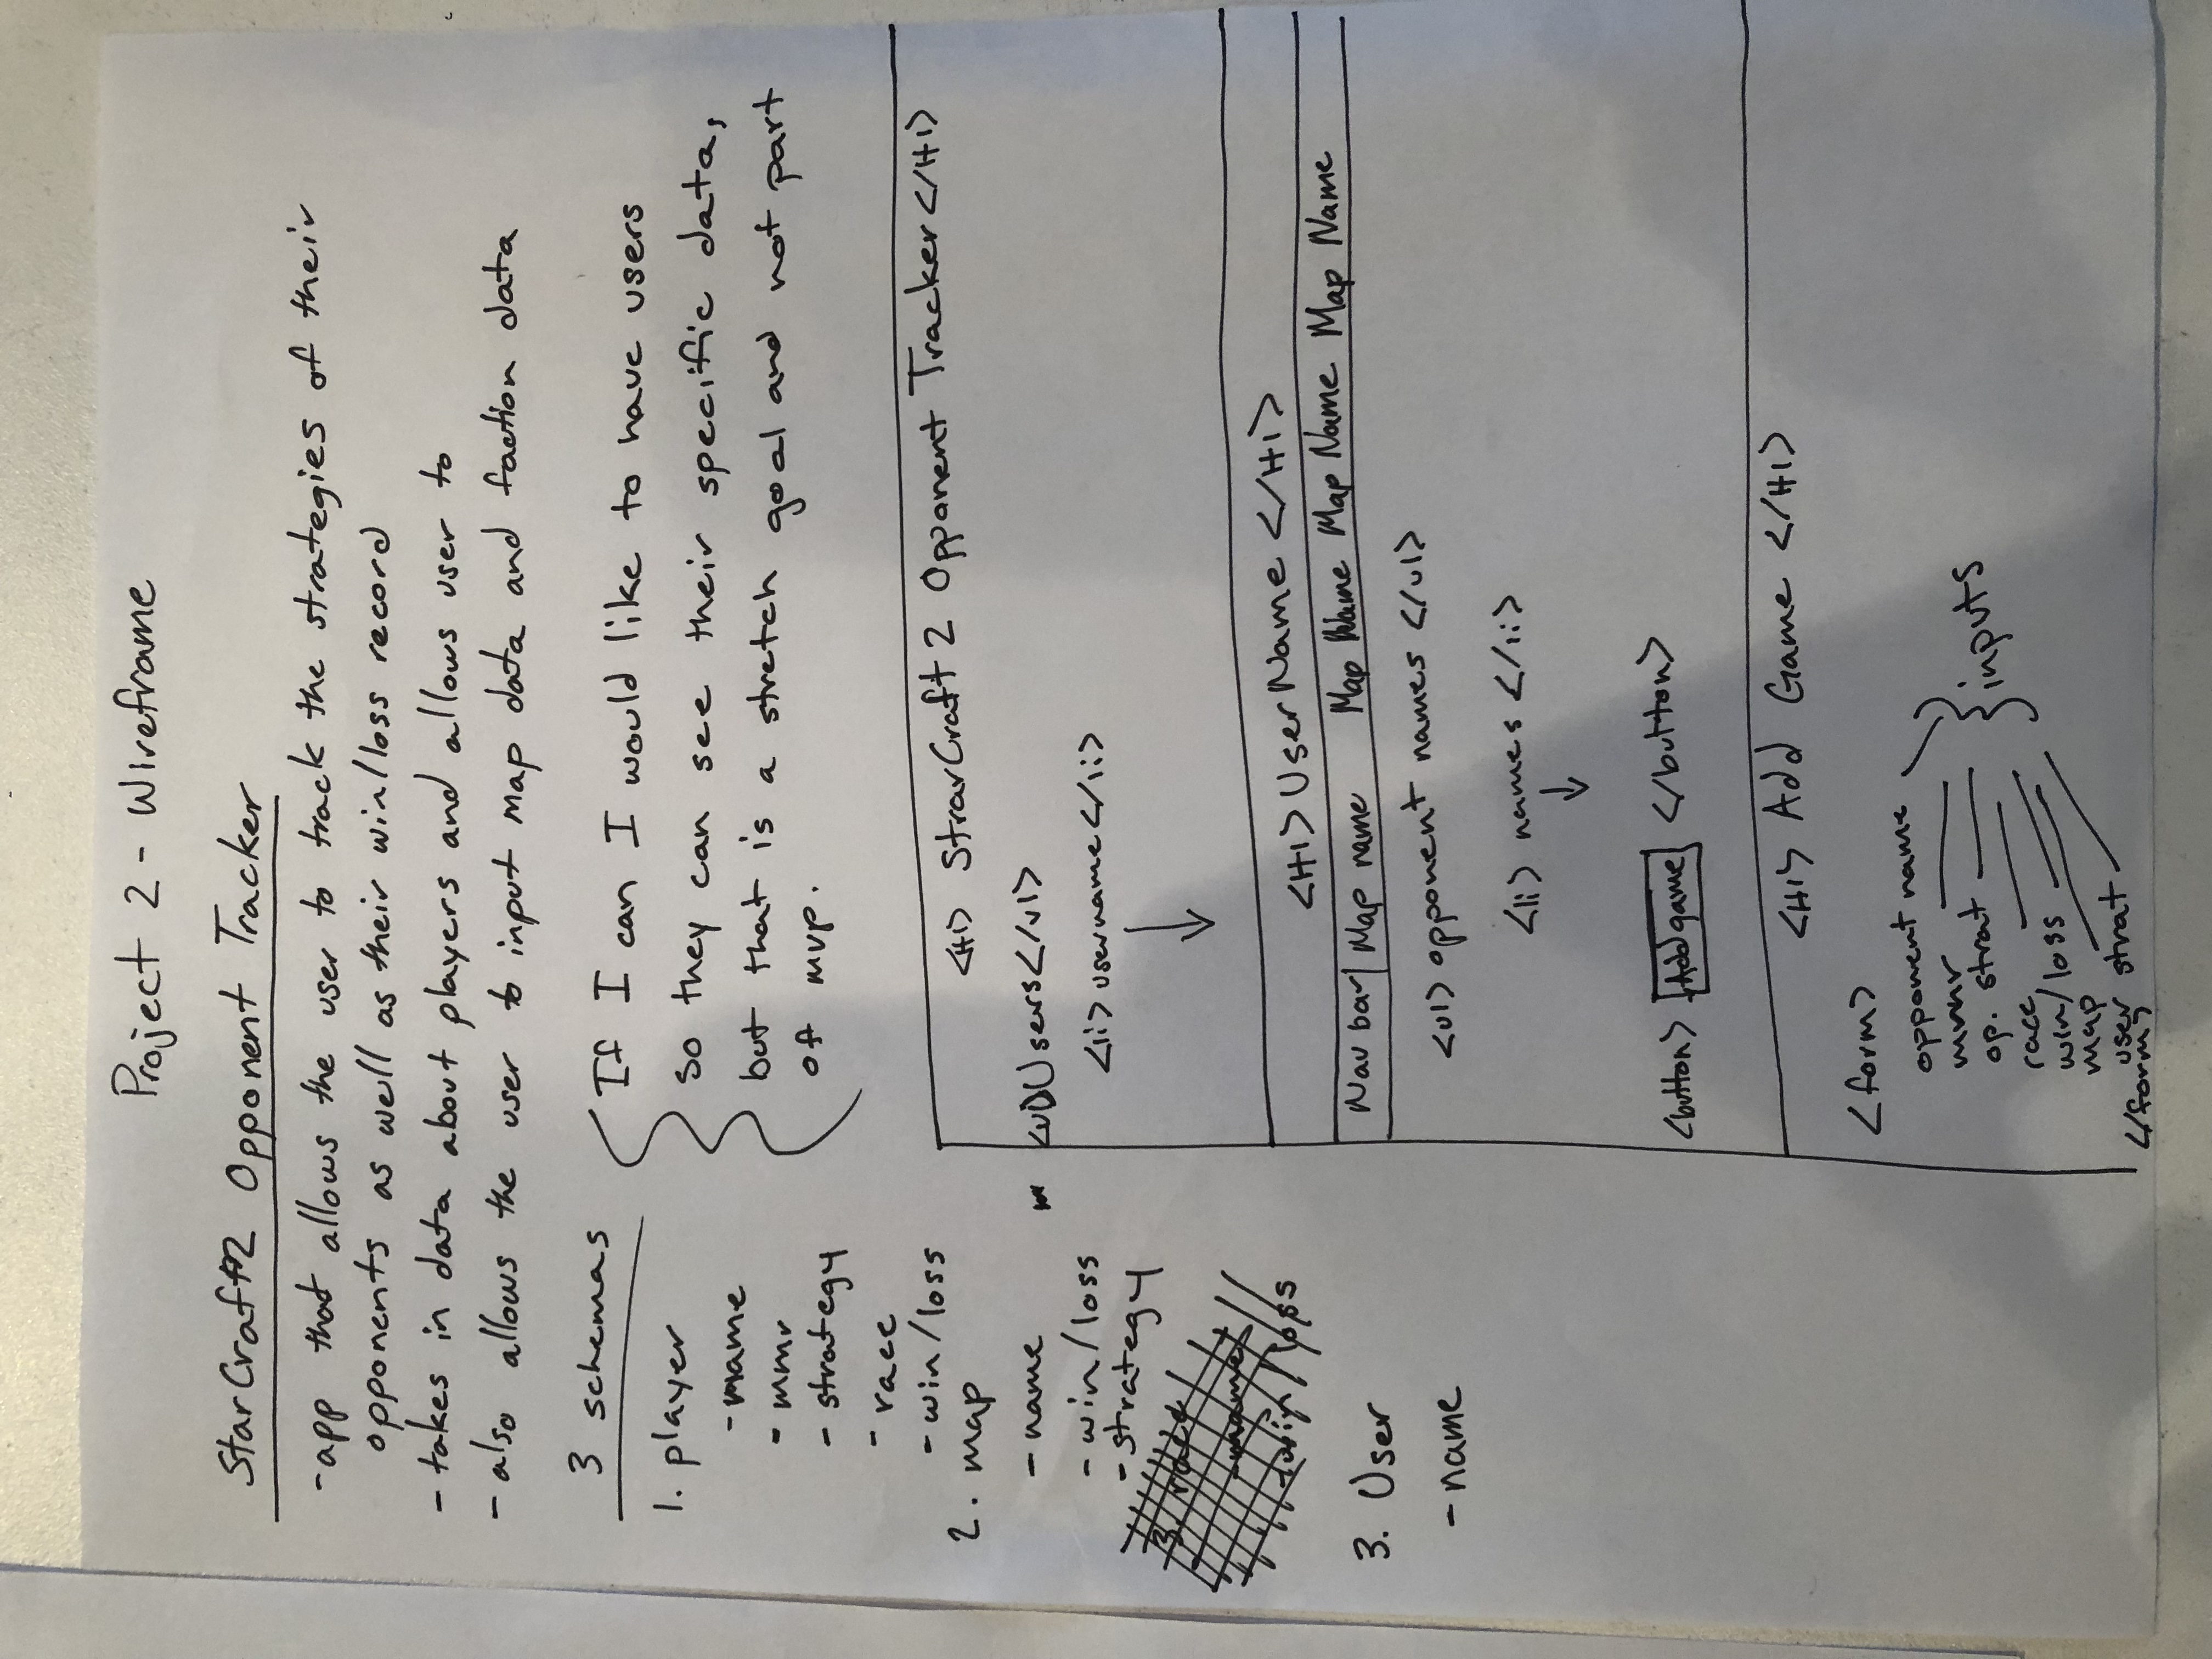 Project 2 - Wireframe
StarCraft 2 Opponent Tracker
- app that allows the user to track the strategies of their
opponents as well as their win/loss record
- takes in data about players and allows user to
- also allows the user to input map data and faction data
3 schemas
1. player
- name
- mmr
- strategy
- race
- win/loss
2. map
- name
- win/loss
- strategy
3. race
- name
- win/loss
3. User
- name
If I can I would like to have users
so they can see their specific data,
but that is a stretch goal and not part
of mvp.
<H1> StrarCraft 2 Opponent Tracker </H1>
<ul> Users </ul>
<li> username </li>
<H1> UserName </H1>
Nav bar | Map name Map Name Map Name Map Name
<ul> opponent names </ul>
<li> names </li>
<button> Add game </button>
<H1> Add Game </H1>
<form>
opponent name
mmr
op. strat
race
win/loss
map
user strat
} inputs
</form>